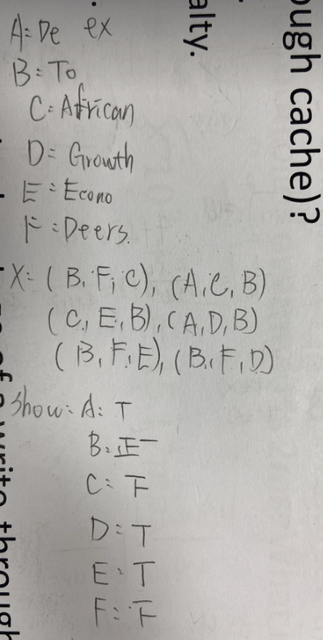 ough cache)?
alty.
A: De ex
B: To
C: African
D: Growth
E: Econo
F: Deers.
X: (B, F, C), (A, C, B)
(C, E, B), (A, D, B)
(B, F, E), (B, F, D)
Show: A: T
B: 正一
C: 下
D: T
E: T
F: 下